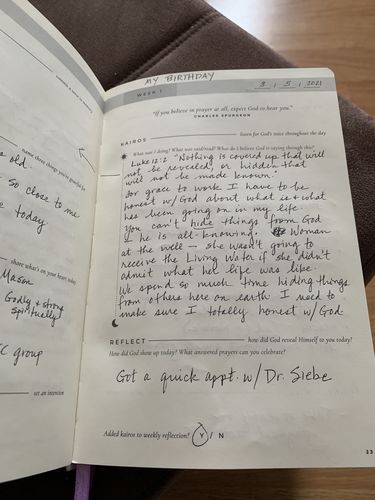 name three things you're grateful for
old.
so close to me
today
share what's on your heart today
Mason
Godly & strong
spiritually
group
set an intention
MY BIRTHDAY
WEEK 1
3 / 5 / 2021
"If you believe in prayer at all, expect God to hear you."
CHARLES SPURGEON
KAIROS
listen for God's voice throughout the day
What was I doing? What was said/read? What do I believe God is saying through this?
Luke 12:2 "Nothing is covered up that will
not be revealed, or hidden that
will not be made known."
for grace to work I have to be
honest w/God about what is & what
has been going on in my life.
You can't hide things from God
& he is all-knowing. Woman
at the well – she wasn't going to
receive the Living Water if she didn't
admit what her life was like.
We spend so much time hiding things
from others here on earth I need to
make sure I totally honest w/God.
REFLECT
how did God reveal Himself to you today?
How did God show up today? What answered prayers can you celebrate?
Got a quick appt. w/ Dr. Siebe
Added kairos to weekly reflection? Y / N
33